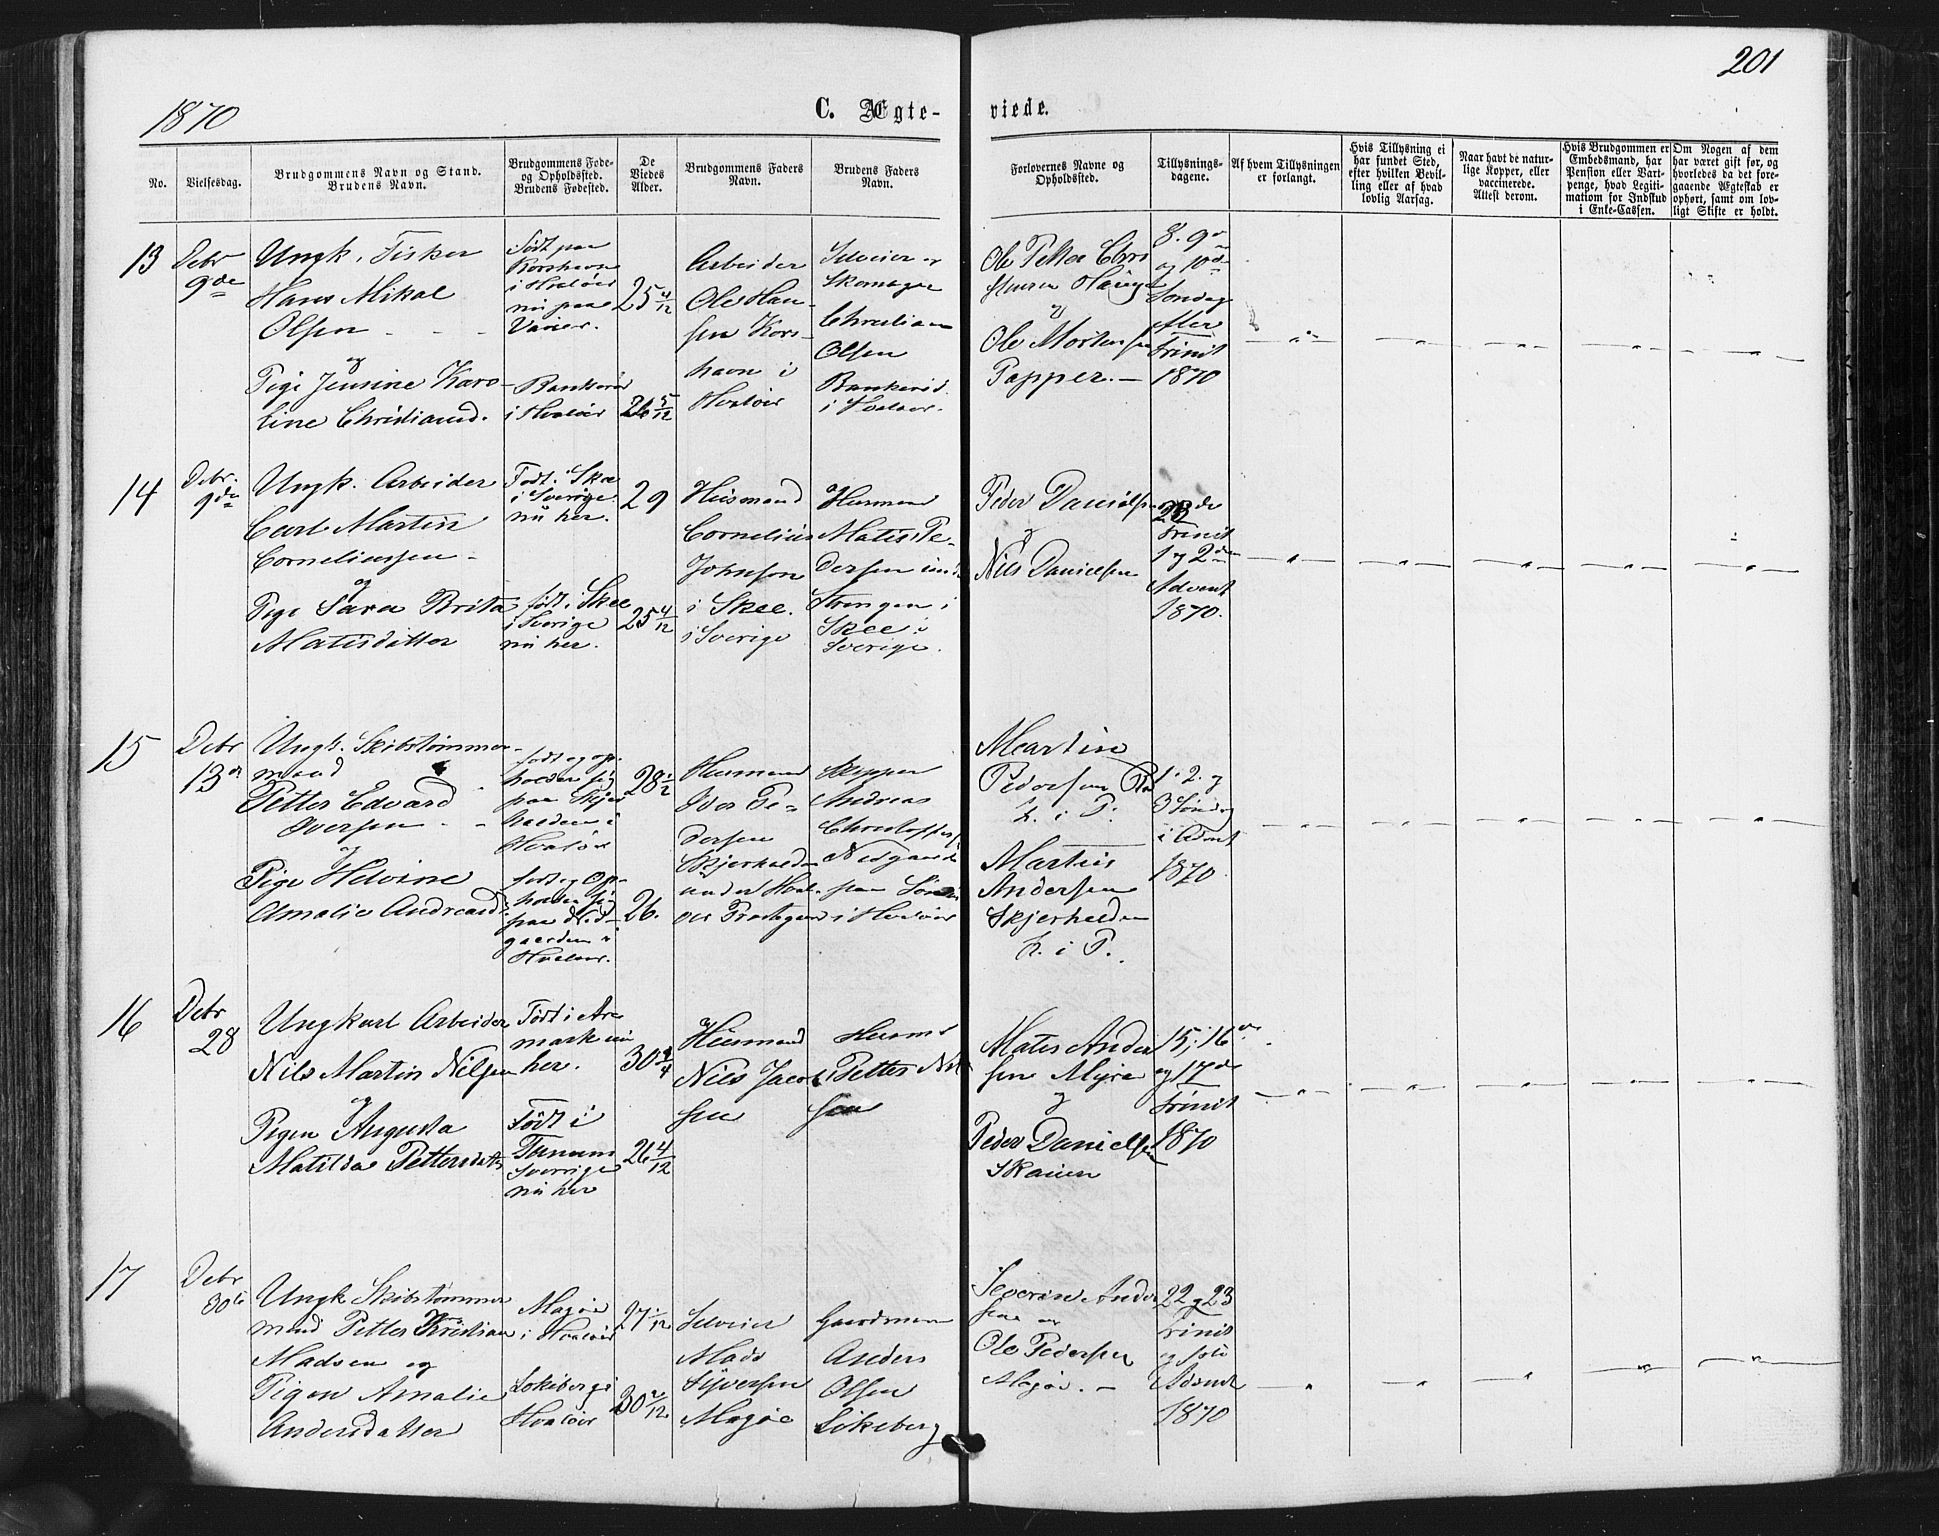 201
1870
C. Ægte-
viede.
No.
Vielsesdag.
Brudgommens Navn og Stand.
Brudens Navn.
Brudgommens Føde-
og Opholdssted.
Brudens Fødested.
De
Viedes
Alder.
Brudgommens Faders
Navn.
Brudens Faders
Navn.
Forlovernes Navne og
Opholdssted.
Tillysnings-
dagene.
Af hvem Tillysningen
er forlangt.
Hvis Tillysning ei
har fundet Sted,
efter hvilken Bevil-
ling eller af hvad
lovlig Aarsag.
Naar havt de natur-
lige Kopper, eller
vaccinerede.
Attest derom.
Hvis Brudgommen er
Embedsmand, har
Pension eller Vart-
penge, hvad Legiti-
mation for Indskud
i Enke-Cassen.
Om Nogen af dem
har været gift før, og
hvorledes da det fore-
gaaende Ægteskab er
ophørt, samt om lov-
ligt Skifte er holdt.
13
Debr
9de
Ungk. Fisker
Hans Mikal
Olsen
og
Pige Jensine Karo-
line Christiansd.
Født paa
Korshavn
i Hvaløer
nu paa
Bankerød
i Hvaløer
25 4/12
26 5/12
Arbeider
Ole Han-
sen Kors-
havn i
Hvaløer
Selveier og
Skomager
Christian
Olsen
Bankerød
i Hvaløer.
Ole Petter Chri
stensen
og
Ole Mortensen
Papper.
8. 9de
og 10de
Søndag
efter
Trinit
1870
14
Debr.
9de
Ungk. Arbeider
Carl Martin
Corneliussen
og
Pige Sara Brita
Matisdatter
Født i Skee
i Sverige
nu her.
født i Skee
i Sverige
nu her.
29
25 4/12
Husmand
Cornelius
Johnson
i Skee.
i Sverige
Husmand
Matis Pe-
dersen
Strengen i
Skee i
Sverige.
Peder Danielsen
og
Nils Danielsen
23de
Trinit
1 og 2den
Advent
1870.
15
Debr
13de
Ungk. Skibstømmer-
mand
Petter Edvard
Iversen
og
Pige Helvine
Amalie Andreasd.
født og op-
holder sig
paa Skjær-
halden i
Hvaløer
født og op-
holder sig
paa Ned-
gaarden i
Hvaløer.
28 1/2
26.
Husmand
Iver Pe-
dersen
Skjerhalden
under Hval-
øer Prestegaard
Skipper
Andreas
Christoffers.
Nedgaarden
paa
i Hvaløer
Martin
Pedersen
h. i P.
Martin
Andersen
Skjerhalden
h. i P.
1. 2. og
3 Søndag
i Advent
1870.
16
Debr
28
Ungkarl Arbeider
Nils Martin Nilsen
og
Pigen Augusta
Matilda Pettersdatter
Født i Are-
mark nu
her.
Født i
Tanum
Sverrige
nu her
30 3/4
26 4/12
Husmand
Nils Jacob
sen
Husmd
Petter Nil
sen
Mates Ander
sen Myre
og
Peder Danielsen
Skauen
15, 16de
og 17de
Trinit
1870
17
Debr
30te
Ungk Skibstømmer
mand Petter Kristian
Madsen og
Pigen Amalie
Andersdatter
Magøe
i Hvaløer
Løkeberg i
Hvaløer
27 1/12
30 2/12
Selveier
Mads
Syversen
Magøe
Gaardmand
Anders
Olsen
Løkeberg
Severin Ander
sen og
Ole Pedersen
Magøe.
22 og 23
Trinit
og 1ste
Advent
1870